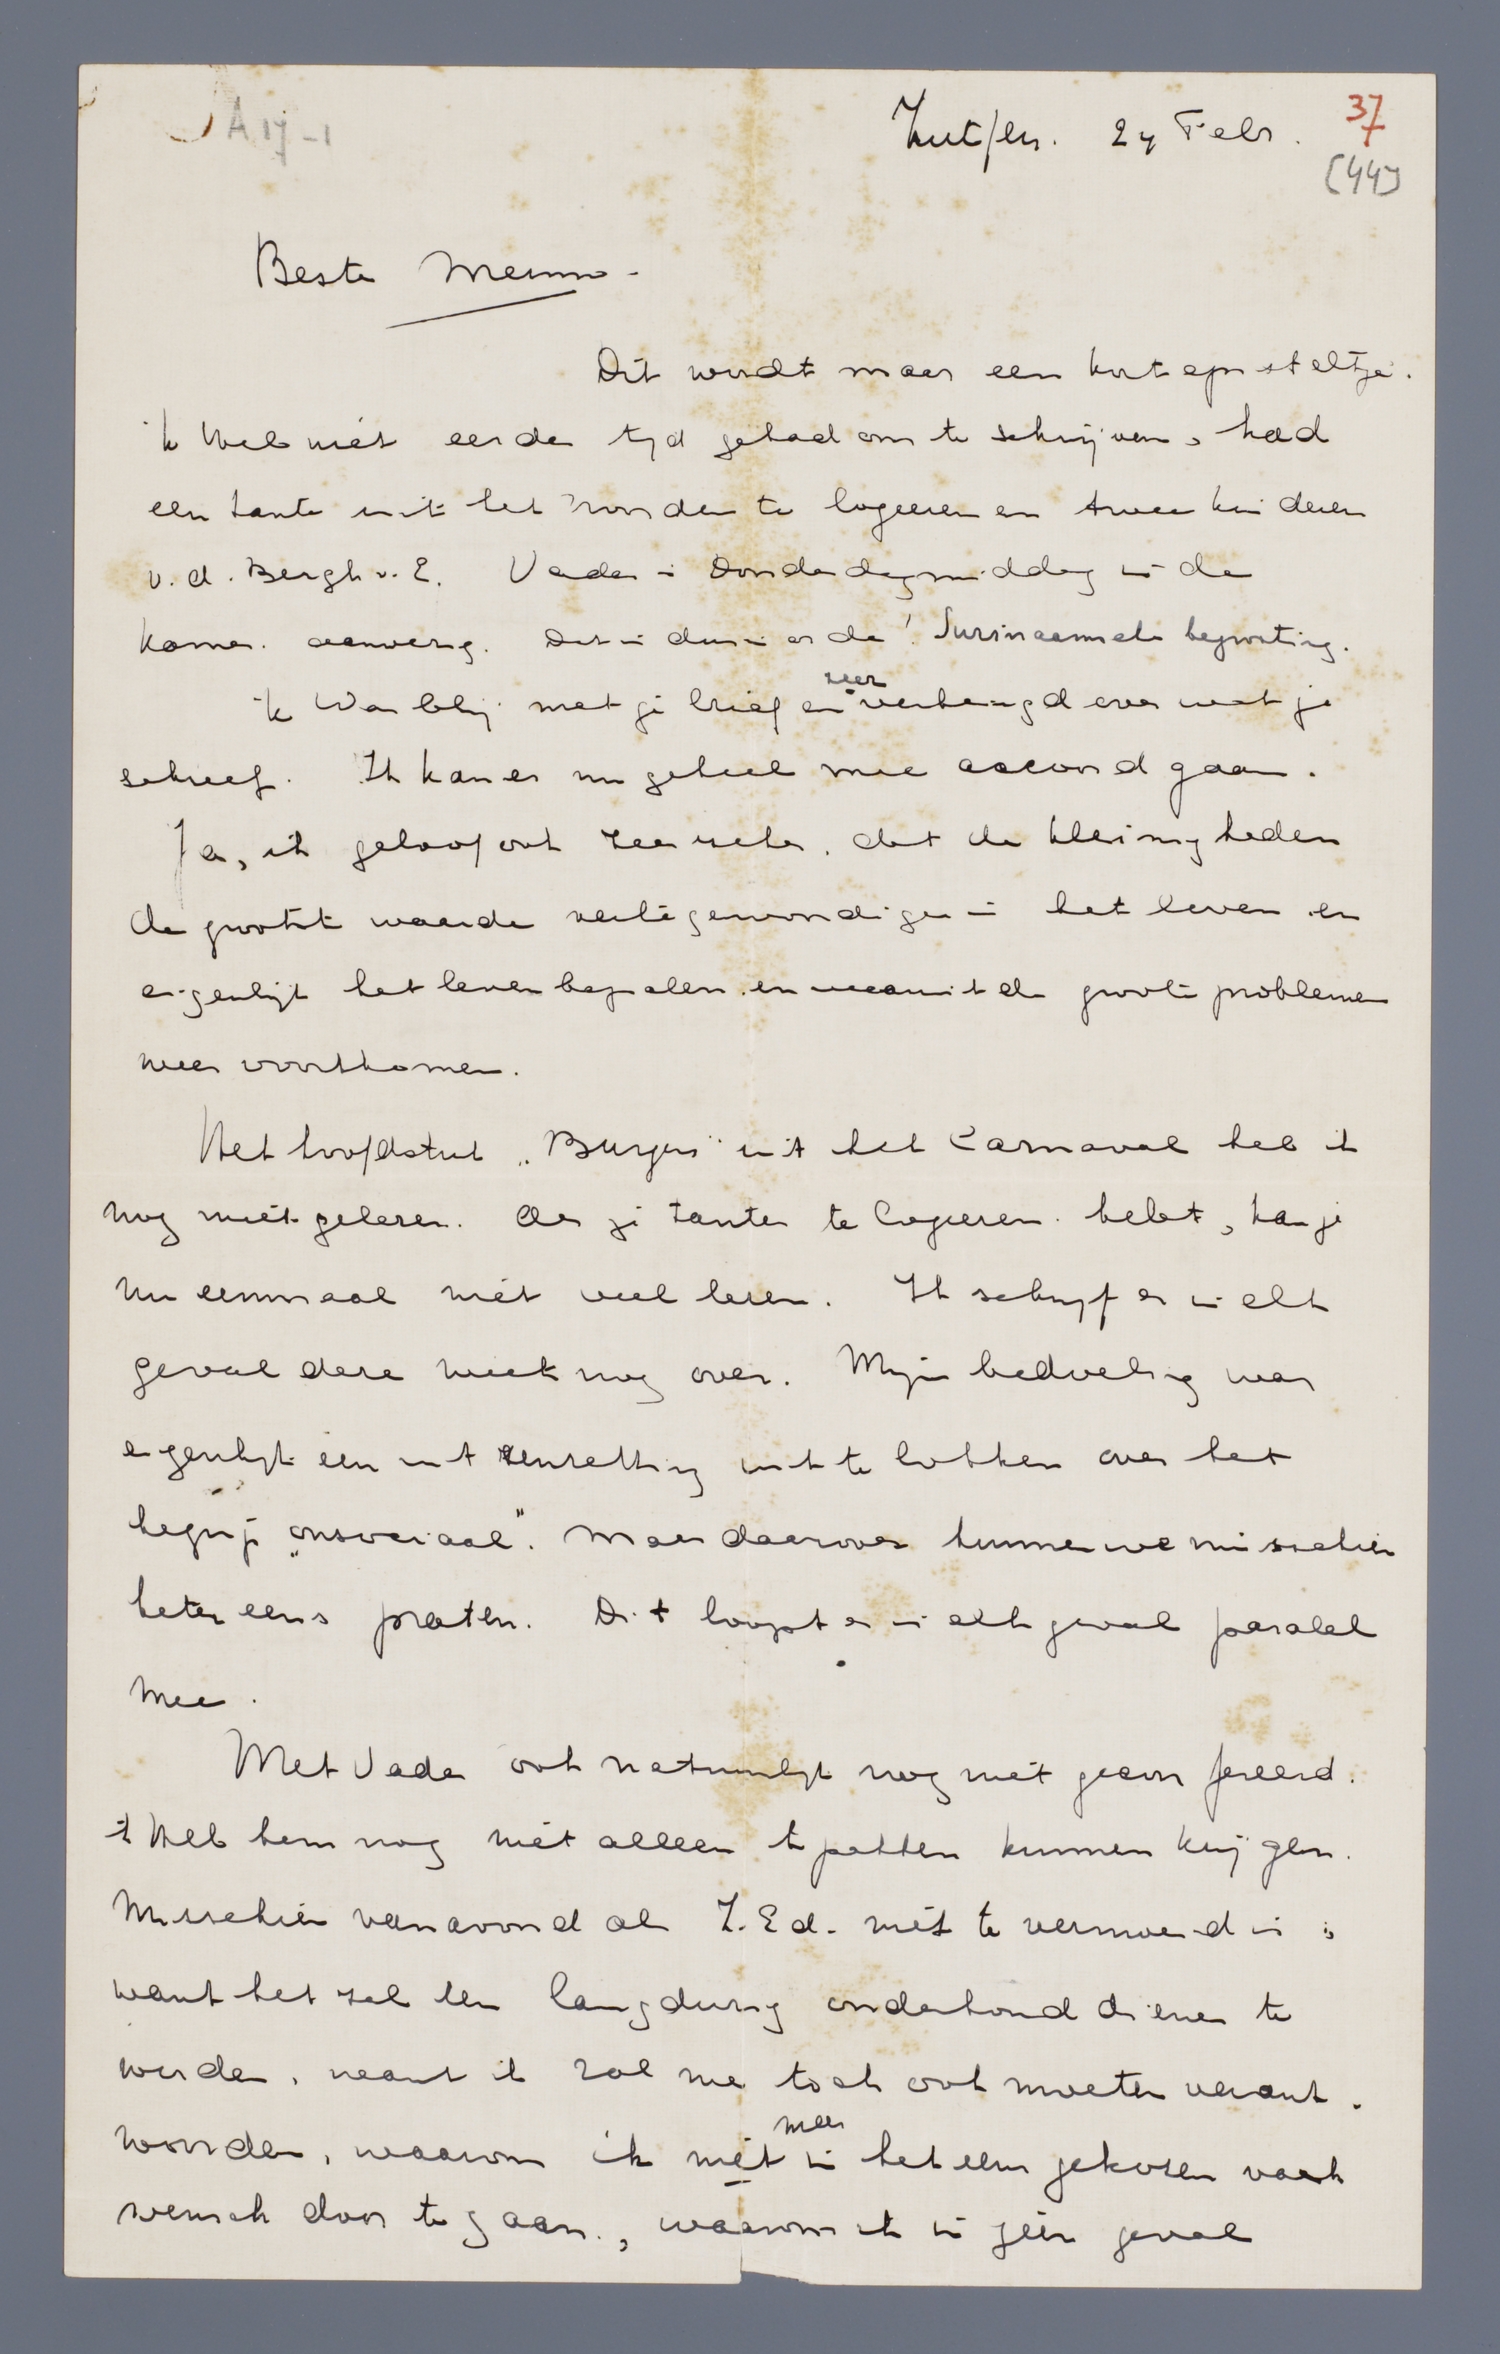 A 17-1
Zutfen. 24 Febr. 37
(44)
Beste Menno -
Dit wordt maar een kort episteltje.
ik heb niet eerder tijd gehad om te schrijven, had
een tante uit het Noorden te logeeren en twee kinderen
v. d. Bergh v. E. Vader is Donderdagmiddag in de
Kamer aanwezig. Dat is dus de Surinaamsche begrooting.
ik was blij met je brief en zeer verheugd over wat je
schreef. Ik kan er nu geheel mee accoord gaan.
Ja, ik geloof ook zeer zeker, dat de kleinigheden
de grootste waarde vertegenwoordigen in het leven en
eigenlijk het leven bepalen en waaruit de groote problemen
weer voortkomen.
Het hoofdstuk „Burgers" uit het Carnaval heb ik
nog niet gelezen. Als je tantes te logeeren hebt, kan je
nu eenmaal niet veel lezen. Ik schrijf er in elk
geval deze week nog over. Mijn bedoeling was
eigenlijk een uiteenzetting uit te lokken over het
begrip „onsociaal". Maar daarover kunnen we misschien
beter eens praten. Dit loopt er in elk geval paralel
mee.
Met Vader ook natuurlijk nog niet geconfereerd.
ik heb hem nog niet alleen te pakken kunnen krijgen.
Misschien vanavond als Z.Ed. niet te vermoeid is;
want het zal een langdurig onderhoud dienen te
worden, want ik zal me toch ook moeten verant-
woorden, waarom ik niet meer in het eens gekozen vak
wensch door te gaan, waarom ik in géén geval